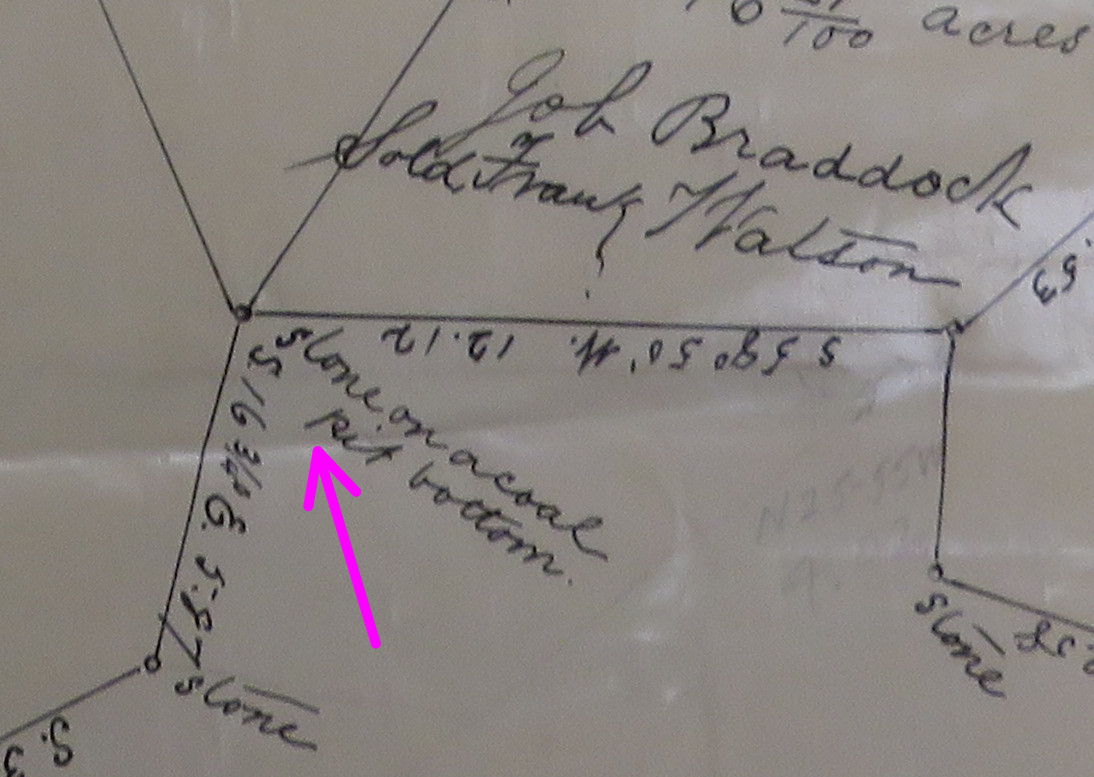 acres
Job Braddock
Sold Frank Watson
S 59° 50' W. 12.12
Stone on a coal
pit bottom.
S. 16 3/4 E. 5.87
Stone
Stone